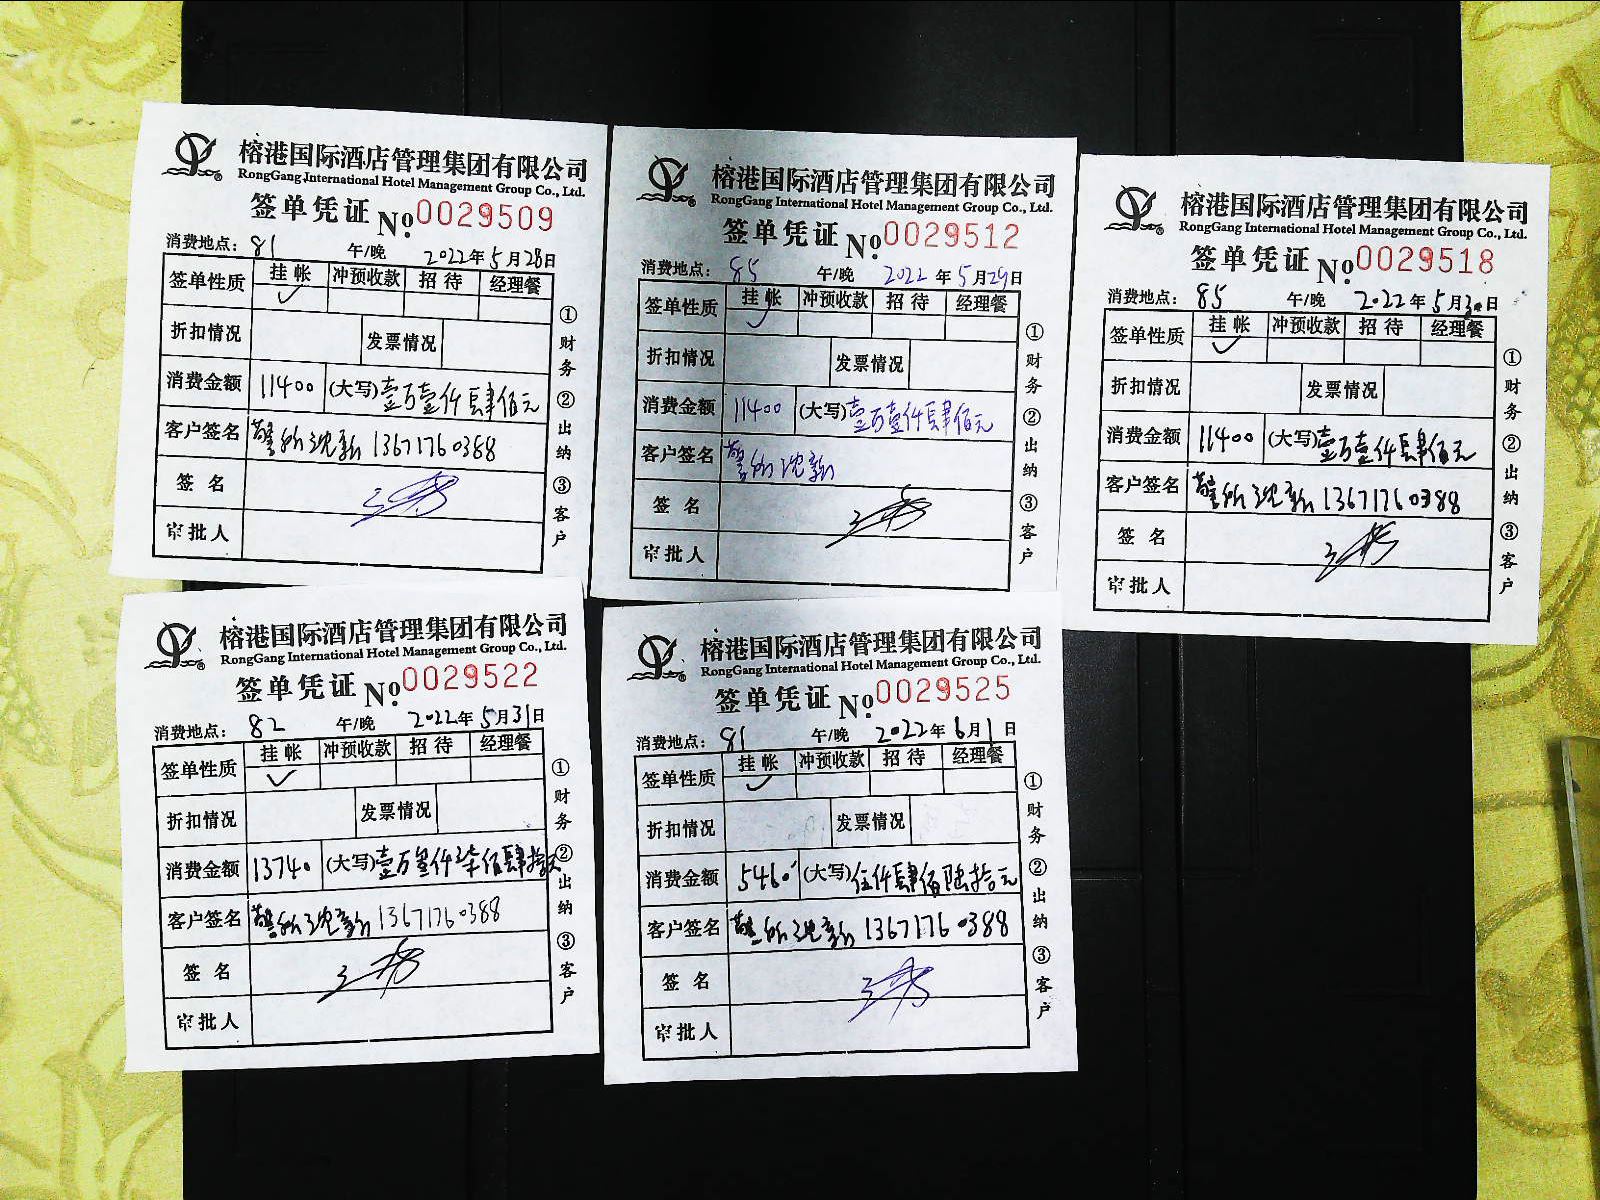 榕港国际酒店管理集团有限公司
RongGang International Hotel Management Group Co., Ltd.
签单凭证 No. 0029509
消费地点: 81 午/晚 2022年5月28日
签单性质 挂帐 冲预收款 招待 经理餐
✓
折扣情况 发票情况
消费金额 11400 (大写)壹万壹仟肆佰元
客户签名 13671760388
签名
审批人
①财务②出纳③客户
榕港国际酒店管理集团有限公司
RongGang International Hotel Management Group Co., Ltd.
签单凭证 No. 0029512
消费地点: 85 午/晚 2022年5月29日
签单性质 挂帐 冲预收款 招待 经理餐
✓
折扣情况 发票情况
消费金额 11400 (大写)壹万壹仟肆佰元
客户签名
签名
审批人
①财务②出纳③客户
榕港国际酒店管理集团有限公司
RongGang International Hotel Management Group Co., Ltd.
签单凭证 No. 0029518
消费地点: 85 午/晚 2022年5月30日
签单性质 挂帐 冲预收款 招待 经理餐
✓
折扣情况 发票情况
消费金额 11400 (大写)壹万壹仟肆佰元
客户签名 13671760388
签名
审批人
①财务②出纳③客户
榕港国际酒店管理集团有限公司
RongGang International Hotel Management Group Co., Ltd.
签单凭证 No. 0029522
消费地点: 82 午/晚 2022年5月31日
签单性质 挂帐 冲预收款 招待 经理餐
✓
折扣情况 发票情况
消费金额 13740 (大写)壹万叁仟柒佰肆拾元
客户签名 13671760388
签名
审批人
①财务②出纳③客户
榕港国际酒店管理集团有限公司
RongGang International Hotel Management Group Co., Ltd.
签单凭证 No. 0029525
消费地点: 81 午/晚 2022年6月1日
签单性质 挂帐 冲预收款 招待 经理餐
✓
折扣情况 发票情况
消费金额 5460 (大写)伍仟肆佰陆拾元
客户签名 13671760388
签名
审批人
①财务②出纳③客户